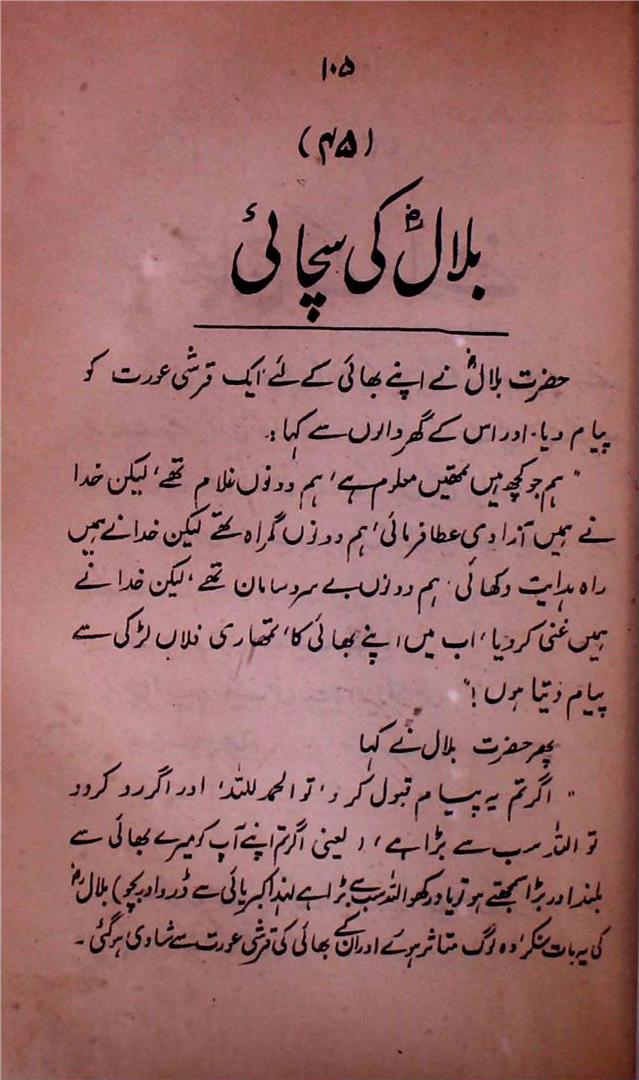 ۱۰۵
(۴۵)
بلالؓ کی سچائی
حضرت بلالؓ نے اپنے بھائی کے لئے ایک قرشی عورت کو
پیام دیا۔ اور اس کے گھر والوں سے کہا:۔
"ہم جو کچھ ہیں تمھیں معلوم ہے، ہم دونوں غلام تھے، لیکن خدا
نے ہمیں آزادی عطا فرمائی، ہم دونوں گمراہ تھے لیکن خدا نے ہمیں
راہ ہدایت دکھائی۔ ہم دونوں بے سروسامان تھے، لیکن خدا نے
ہمیں غنی کر دیا، اب میں اپنے بھائی کا، تمھاری فلاں لڑکی سے
پیام دیتا ہوں!"
پھر حضرت بلال نے کہا
"اگر تم یہ پیام قبول کر و، تو الحمد للہ، اور اگر رد کر دو
تو اللہ سب سے بڑا ہے، (یعنی اگر تم اپنے آپ کو میرے بھائی سے
بلند اور بڑا سمجھتے ہو تو یاد رکھو اللہ سب سے بڑا ہے لہٰذا کبریائی سے ڈرو اور بچو) بلالؓ
کی یہ بات سنکر وہ لوگ متاثر ہوئے اور ان کے بھائی کی قرشی عورت سے شادی ہو گئی۔